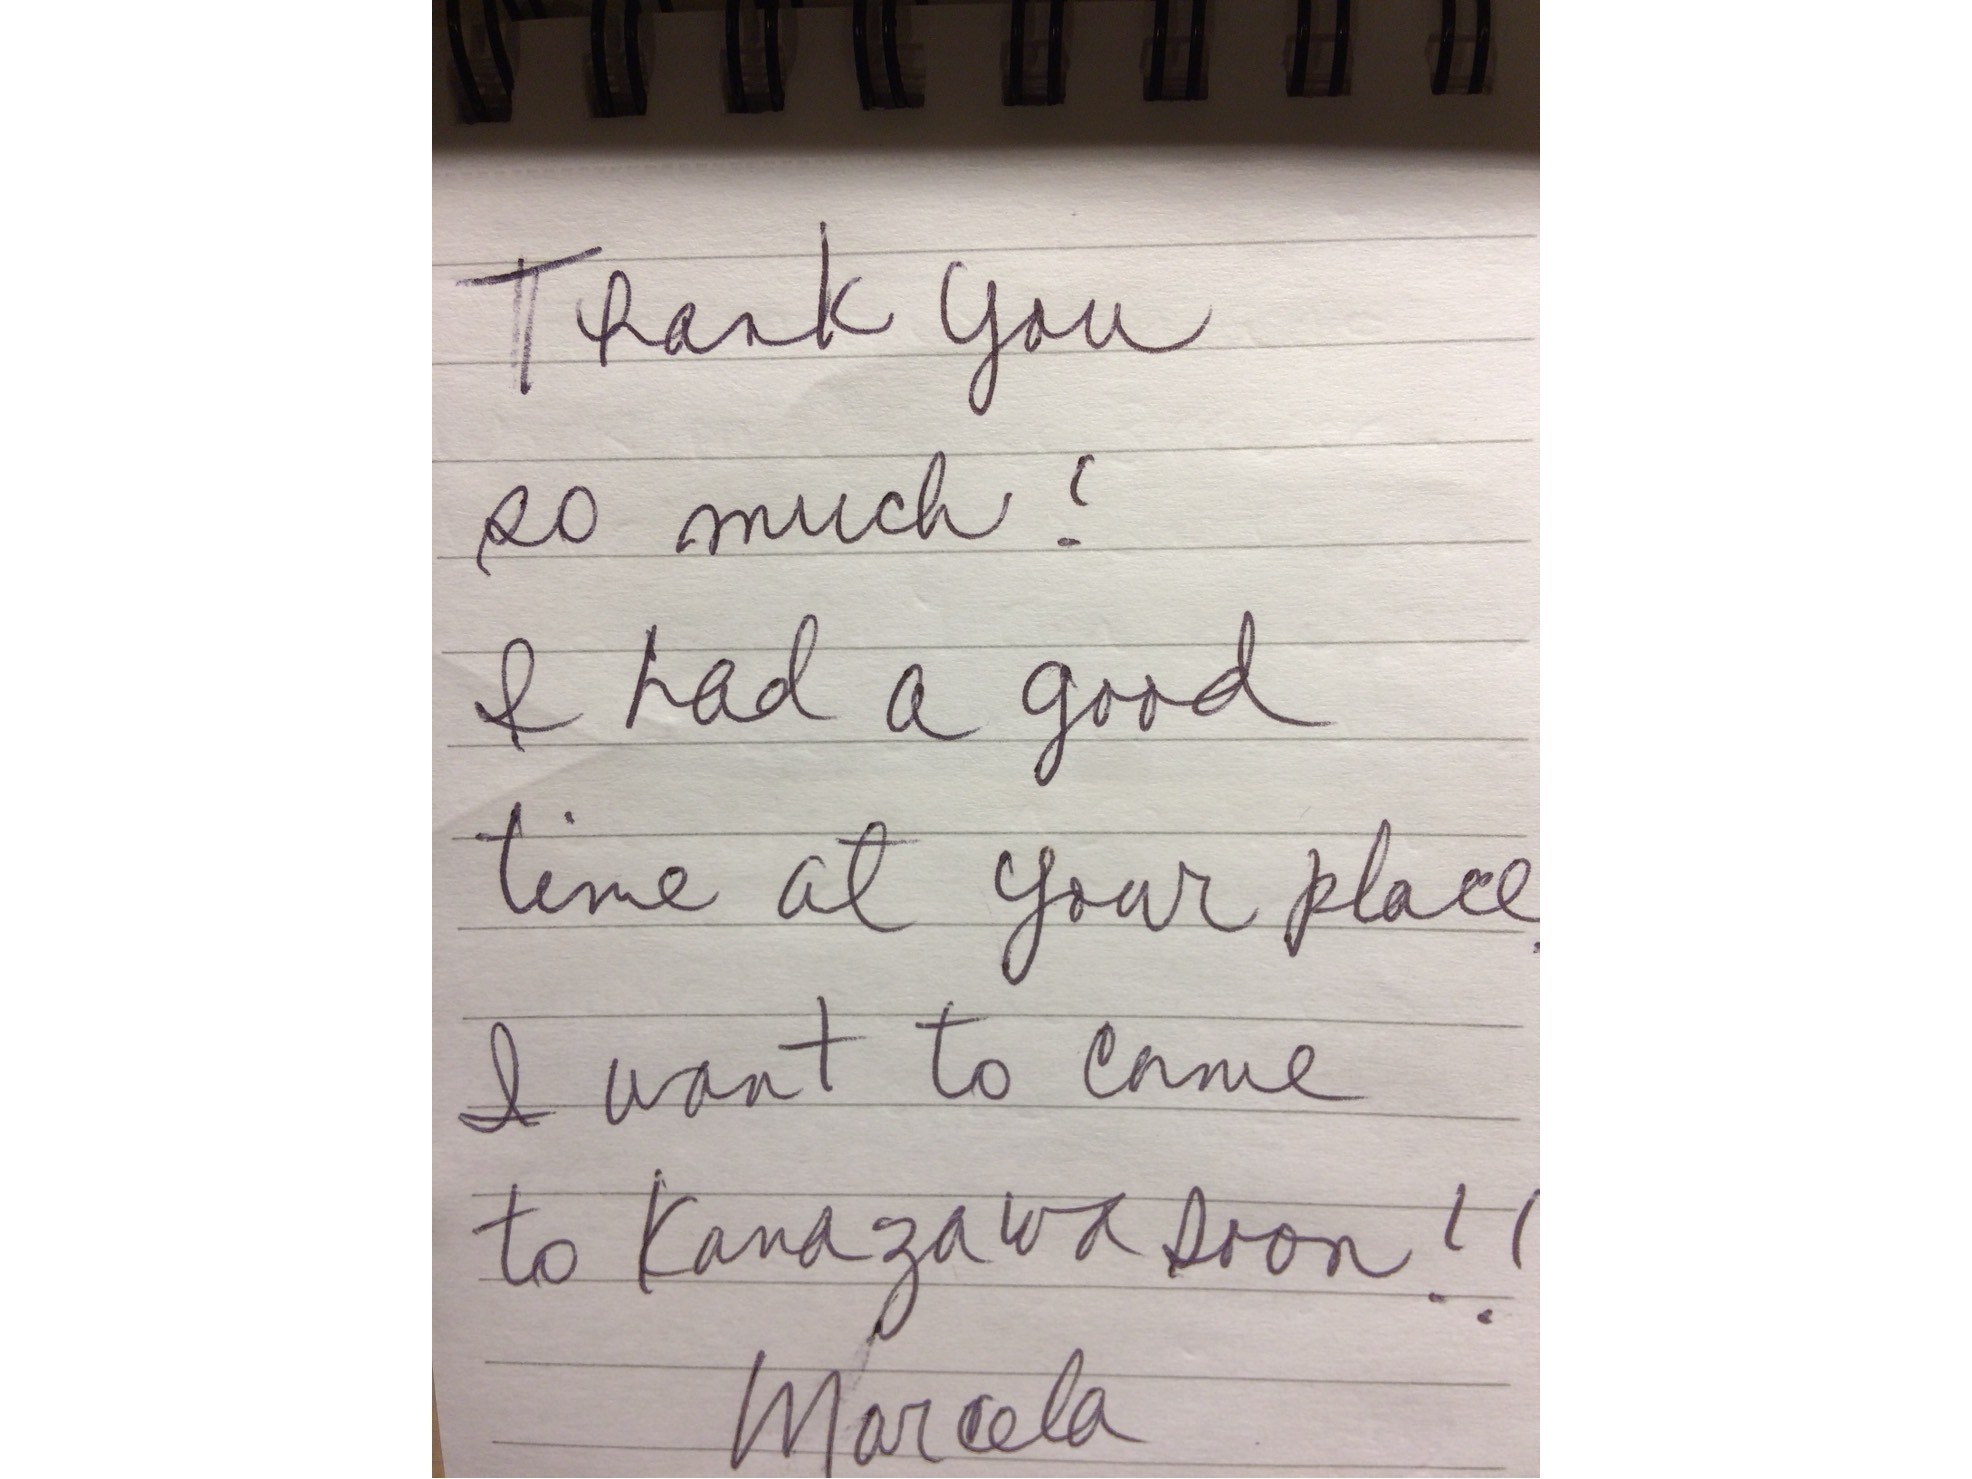 Thank you
so much!
I had a good
time at your place.
I want to come
to Kanazawa soon!!
Marcela